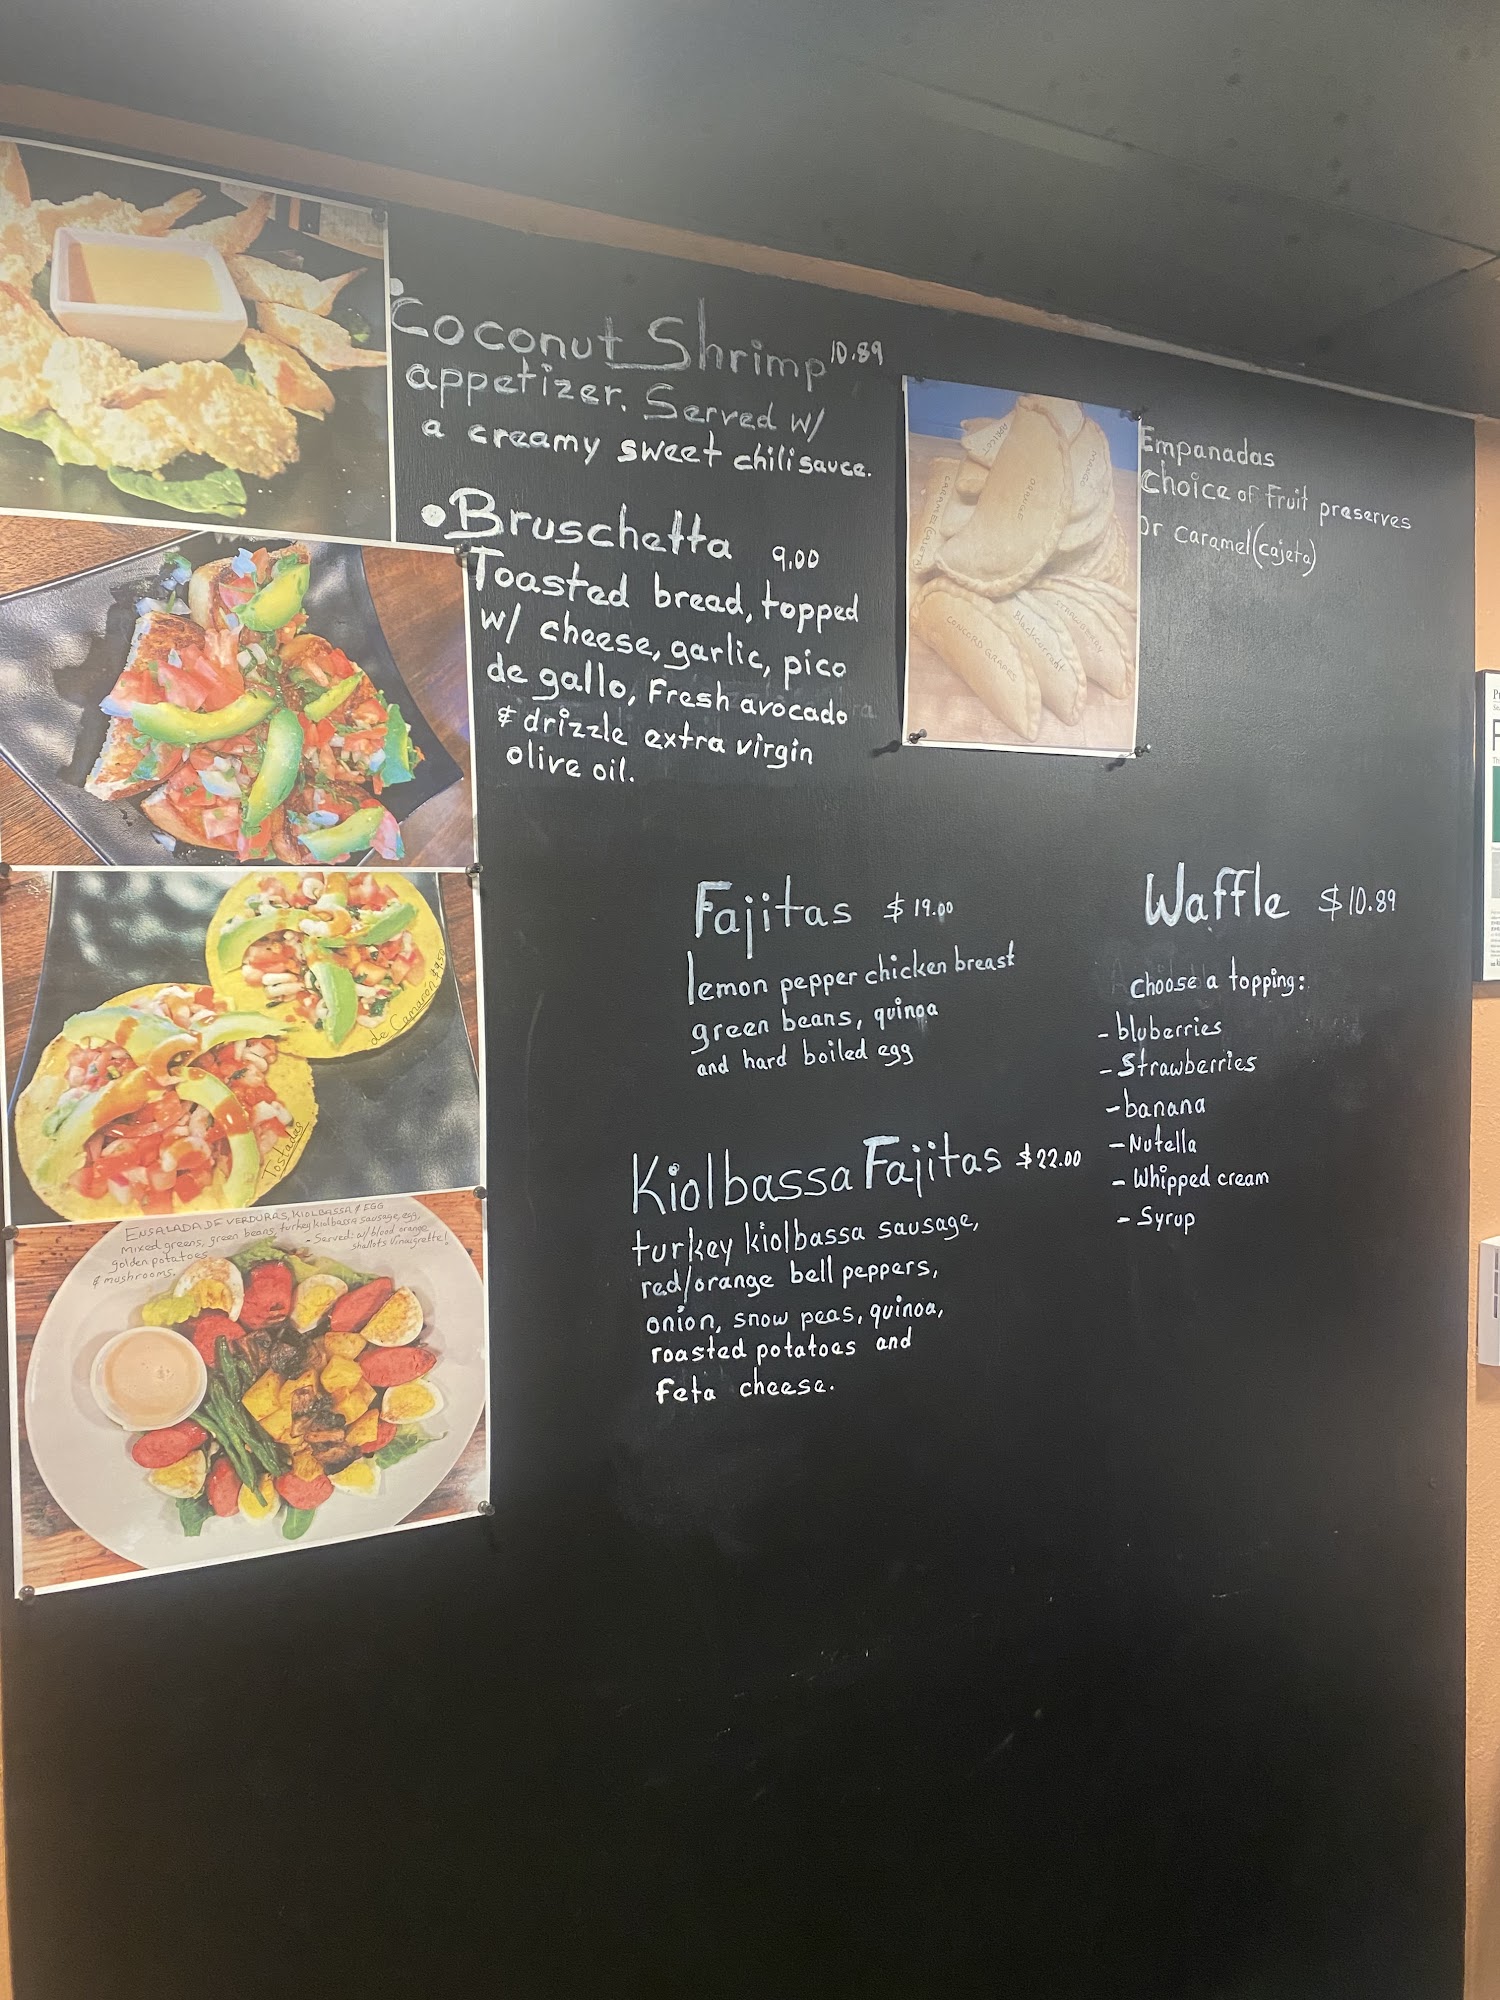 Coconut Shrimp 10.89
appetizer. Served w/
a creamy sweet chili sauce.
Bruschetta 9.00
Toasted bread, topped
w/ cheese, garlic, pico
de gallo, Fresh avocado
& drizzle extra virgin
olive oil.
de Camarón $9.50
Tostadas
ENSALADA DE VERDURAS, KIOLBASSA & EGG
mixed greens, green beans, turkey kiolbassa sausage, egg,
golden potatoes
& mushrooms.
- Served: w/ blood orange
shallots vinaigrette!
APRICOT
MANGO
ORANGE
CARAMEL (CAJETA)
STRAWBERRY
Blackcurrant
CONCORD GRAPES
Empanadas
Choice of Fruit preserves
Or caramel (cajeta)
Fajitas $ 19.00
lemon pepper chicken breast
green beans, quinoa
and hard boiled egg
Kiolbassa Fajitas $22.00
turkey kiolbassa sausage,
red/orange bell peppers,
onion, snow peas, quinoa,
roasted potatoes and
feta cheese.
Waffle $10.89
choose a topping:
- bluberries
- Strawberries
- banana
- Nutella
- Whipped cream
- Syrup